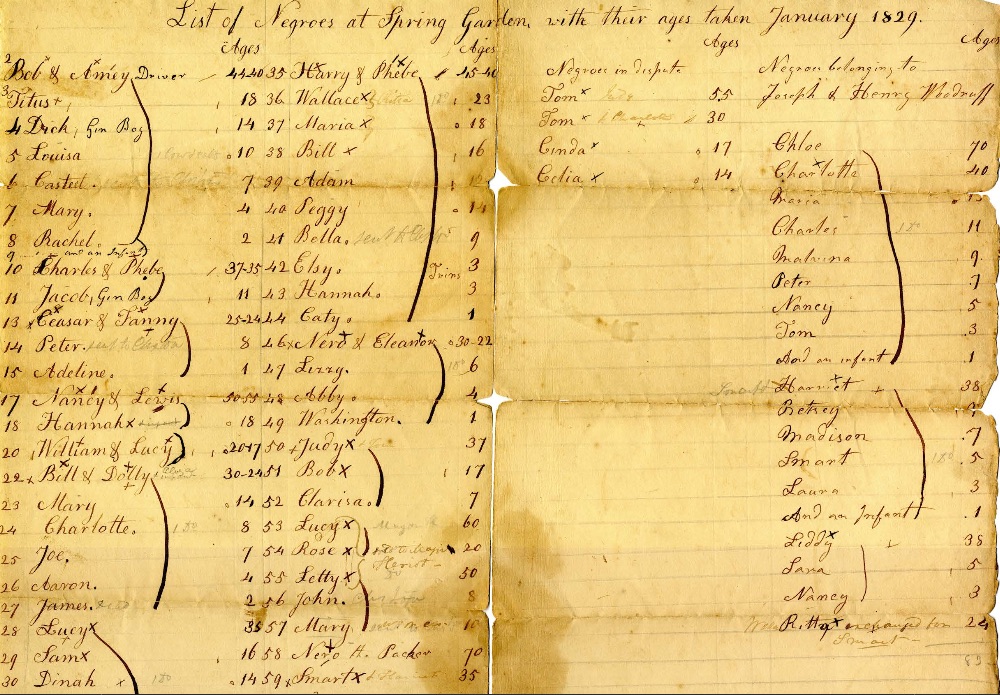 List of Negroes at Spring Garden, with their ages taken January 1829.
Ages
2 Bob & Amey, Driver 44 40
3 Titus 18
4 Dick, Gin Boy 14
5 Louisa 10
6 Casteel. 7
7 Mary. 4
8 Rachel. 2
9 and an Infant
10 Charles & Phebe 37-35
11 Jacob, Gin Boy 11
13 x Ceasar & Fanny 25-24
14 Peter. 8
15 Adeline. 1
17 Nancy & Lewis 50 55
18 Hannah x 18
20 William & Lucy 20 17
22 x Bill & Dolly 30-24
23 Mary 14
24 Charlotte. 8
25 Joe. 7
26 Aaron. 4
27 James. 2
28 Lucy x 35
29 Sam x 16
30 Dinah x 14
Ages
35 Harry & Phebe 45-40
36 Wallace x 23
37 Maria x 18
38 Bill x 16
39 Adam 12
40 Peggy 14
41 Bella. 9
42 Elsy. Twins 3
43 Hannah. 3
44 Caty. 1
46 x Nero & Eleanor 30-22
47 Lizzy. 6
48 Abby. 4
49 Washington. 1
50 Judy x 37
51 Bob x 17
52 Clarisa. 7
53 Lucy x 60
54 Rose x 20
55 Letty x 50
56 John. 8
57 Mary 10
58 Nero H. Packer 70
59 x Smart x 35
Ages
Negroes in dispute
Tom x 55
Tom x 30
Cinda x 17
Celia x 14
Ages
Negroes belonging to
Joseph & Henry Woodruff
Chloe 70
Charlotte 40
Maria
Charles 11
Malvina 9
Peter 7
Nancy 5
Tom 3
And an infant 1
Harriet 38
Betsey
Madison 7
Smart 5
Laura 3
And an Infant 1
Liddy x 38
Sara 5
Nancy 3
Ritta x exchanged for 24
Smart